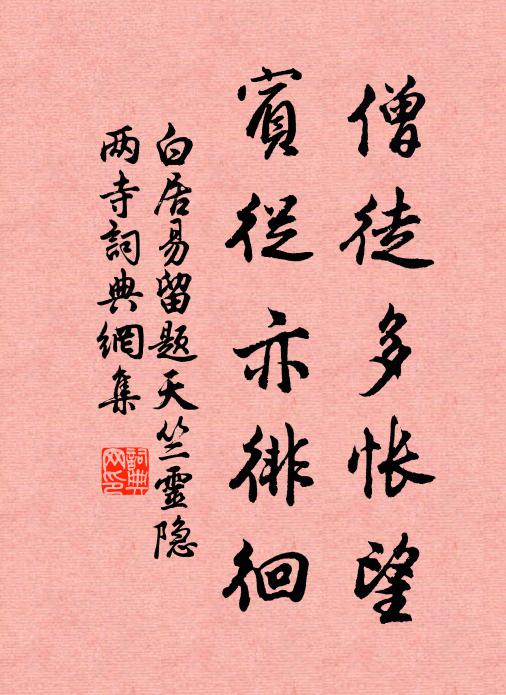 僧徒多悵望
賓從亦徘徊
白居易留題天竺靈隐
两寺詞典網集
詞典
网印